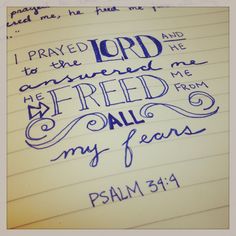 prayer
ered me, he freed me f
I PRAYED LORD AND
to the HE
answered me
HE FREED ME
FROM
ALL
my fears
PSALM 34:4